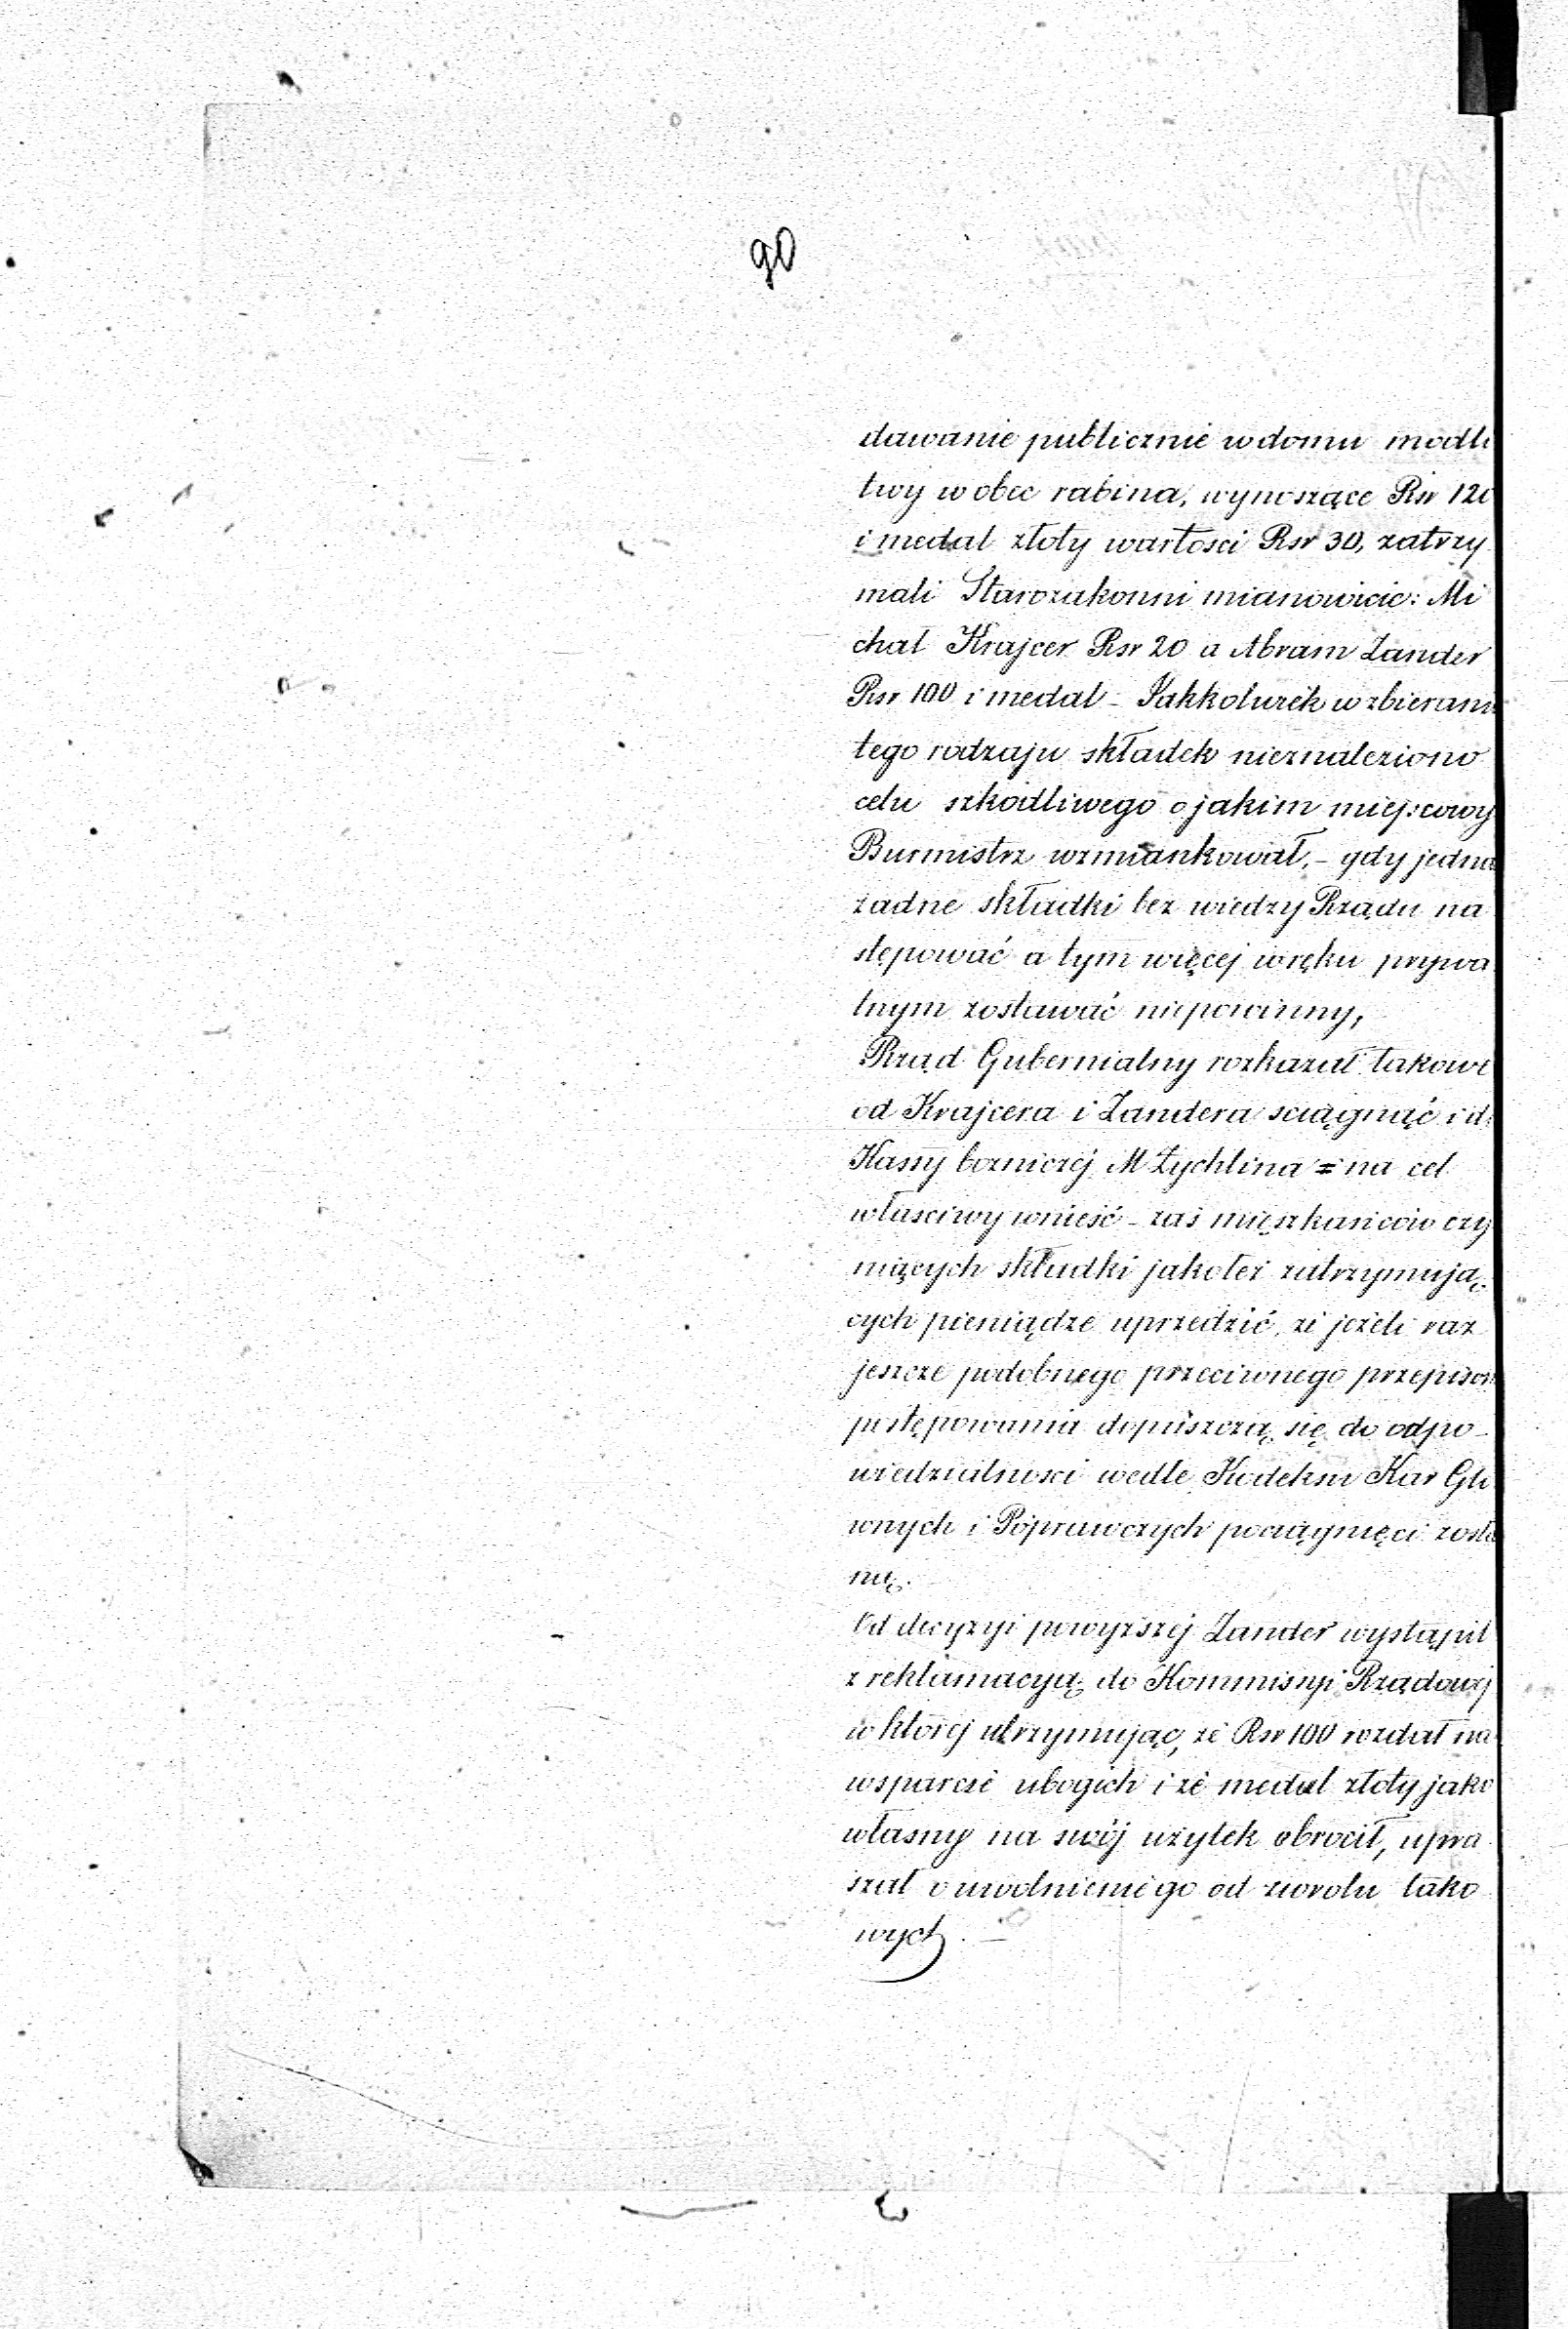 90
dawanie publicznie w domu modli
twy w obec rabina, wynoszące Rsr 120
i medal złoty wartosci Rsr 30, zatrzy
mali Starozakonni mianowicie: Mi
chal Krajcer Rsr 20 a Abram Zander
Rsr 100 i medal – Jakkolwiek w zbierani
tego rodzaju składek nieznaleziono
celu szkodliwego o jakim miejscowy
Burmistrz wzmiankował, – gdy jedna
żadne składki bez wiedzy Rządu na
stępować a tym więcej w ręku prywa
tnym zostawać niepowinny,
Rząd Gubernialny rozkazał takowe
od Krajcera i Zandera sciągnąć i d
Kassy bozniczej M Żychlina = na cel
własciwy wnieść – zaś mięszkańców czy
niących składki jakoteż zatrzymują
cych pieniądze uprzedzić, że jeżeli raz
jeszcze podobnego przeciwnego przepisom
postępowania dopuszczą się do odpo –
wiedzialnosci wedle Kodeksu Kar Głó
wnych i Poprawczych pociągnięci zosta
ną.
Od decyzyi powyzszej Zander wystąpił
z reklamacyą do Kommisyi Rządowej
w ktorej utrzymując, że Rsr 100 rozdał na
wsparcie ubogich i że medal złoty jako
własny na swój użytek obrocił, upra
szał o uwolnienie go od zwrotu tako
wych. –